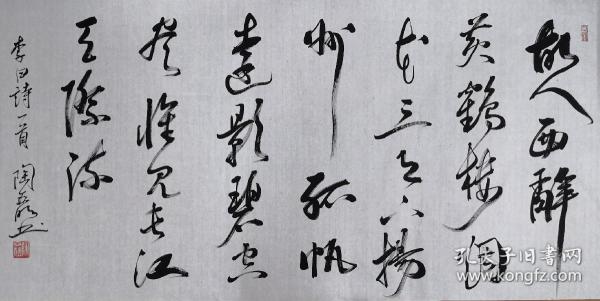 故人西辭
黄鶴楼烟
花三月下揚
州孤帆
遠影碧空
尽惟見長江
天際流
李白詩一首 陶 书
孔夫子旧书网
www.kongfz.com